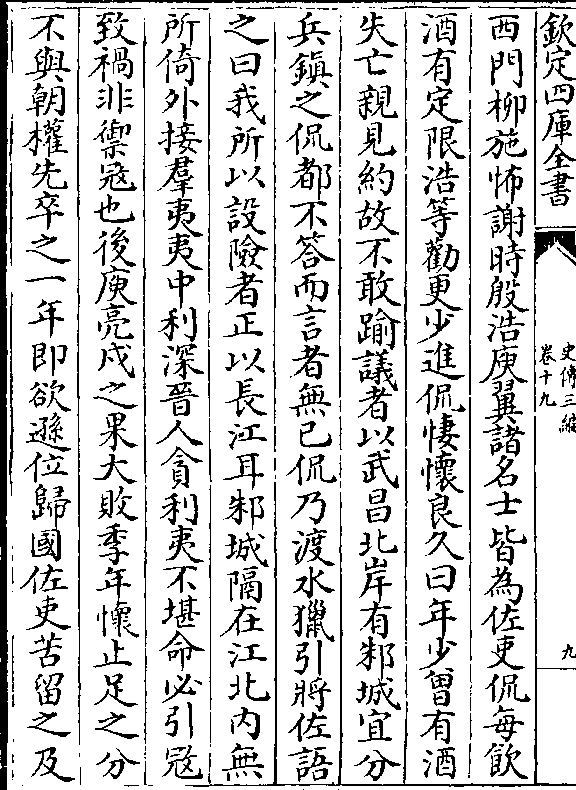 欽定四庫全書
史傳三編
卷十九
九
西門柳施怖謝時殷浩庾翼諸名士皆為佐吏侃每飲
酒有定限浩等勸更少進侃悽懷良久曰年少曽有酒
失亡親見約故不敢踰議者以武昌北岸有邾城宜分
兵鎮之侃都不答而言者無已侃乃渡水獵引將佐語
之曰我所以設險者正以長江耳邾城隔在江北内無
所倚外接羣夷夷中利深晉人貪利夷不堪命必引冦
致禍非禦冦也後庾亮戍之果大敗季年懷止足之分
不與朝權先卒之一年即欲遜位歸國佐吏苦留之及